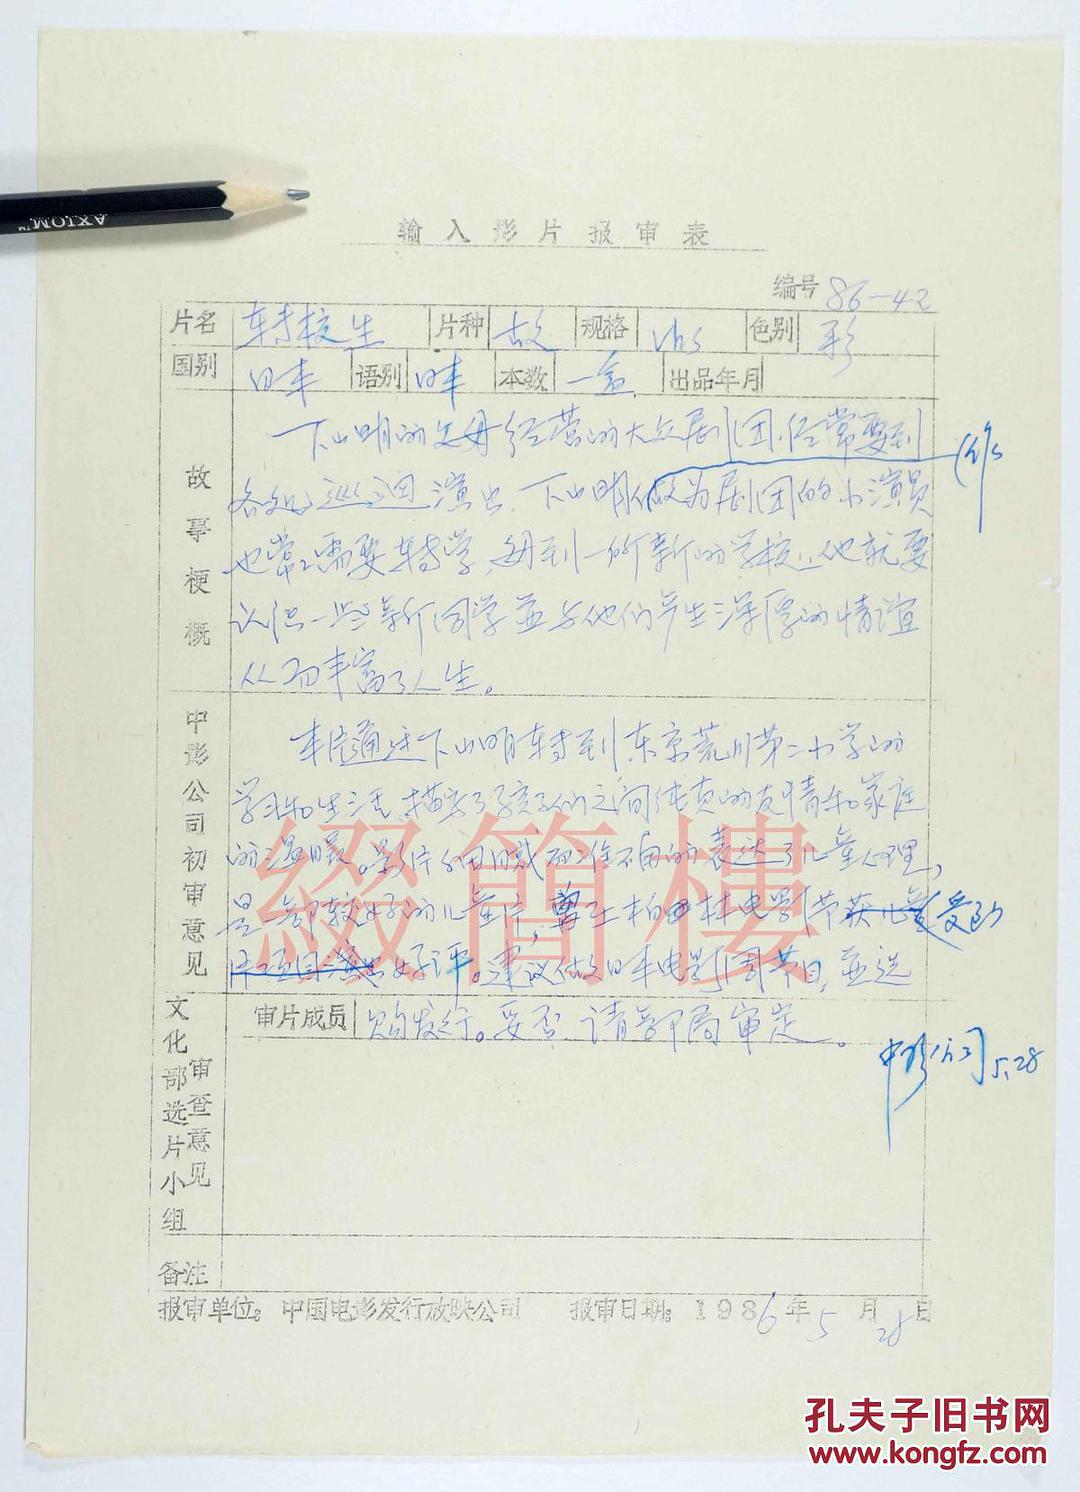 AXIOM™
输入影片报审表
编号 86-42
片名 转校生 片种 故 规格 VHS 色别 彩
国别 日本 语别 日本 本数 一盒 出品年月
故事梗概
下山明的父母经营的大众剧团,经常要到
各处巡迴演出,下山明做为剧团的小演员
也常常需要转学,每到一所新的学校,他就要
认识一些新同学並与他们产生深厚的情谊
从而丰富了人生。
中影公司初审意见
本片通过下山明转到东京荒川第二小学的
学习和生活,描写了孩子们之间纯真的友情和家庭
的温暖。影片细腻而准确的表达了儿童心理,
是一部较好的儿童片,曾在柏林电影节获儿童受到
好评。建议做日本电影周节目,並选
文化部选片小组审查意见
审片成员 购发行。妥否,请部局审定。
中影公司 5.28
备注
报审单位:中国电影发行放映公司 报审日期:1986年5月28日
綴簡樓
孔夫子旧书网
www.kongfz.com